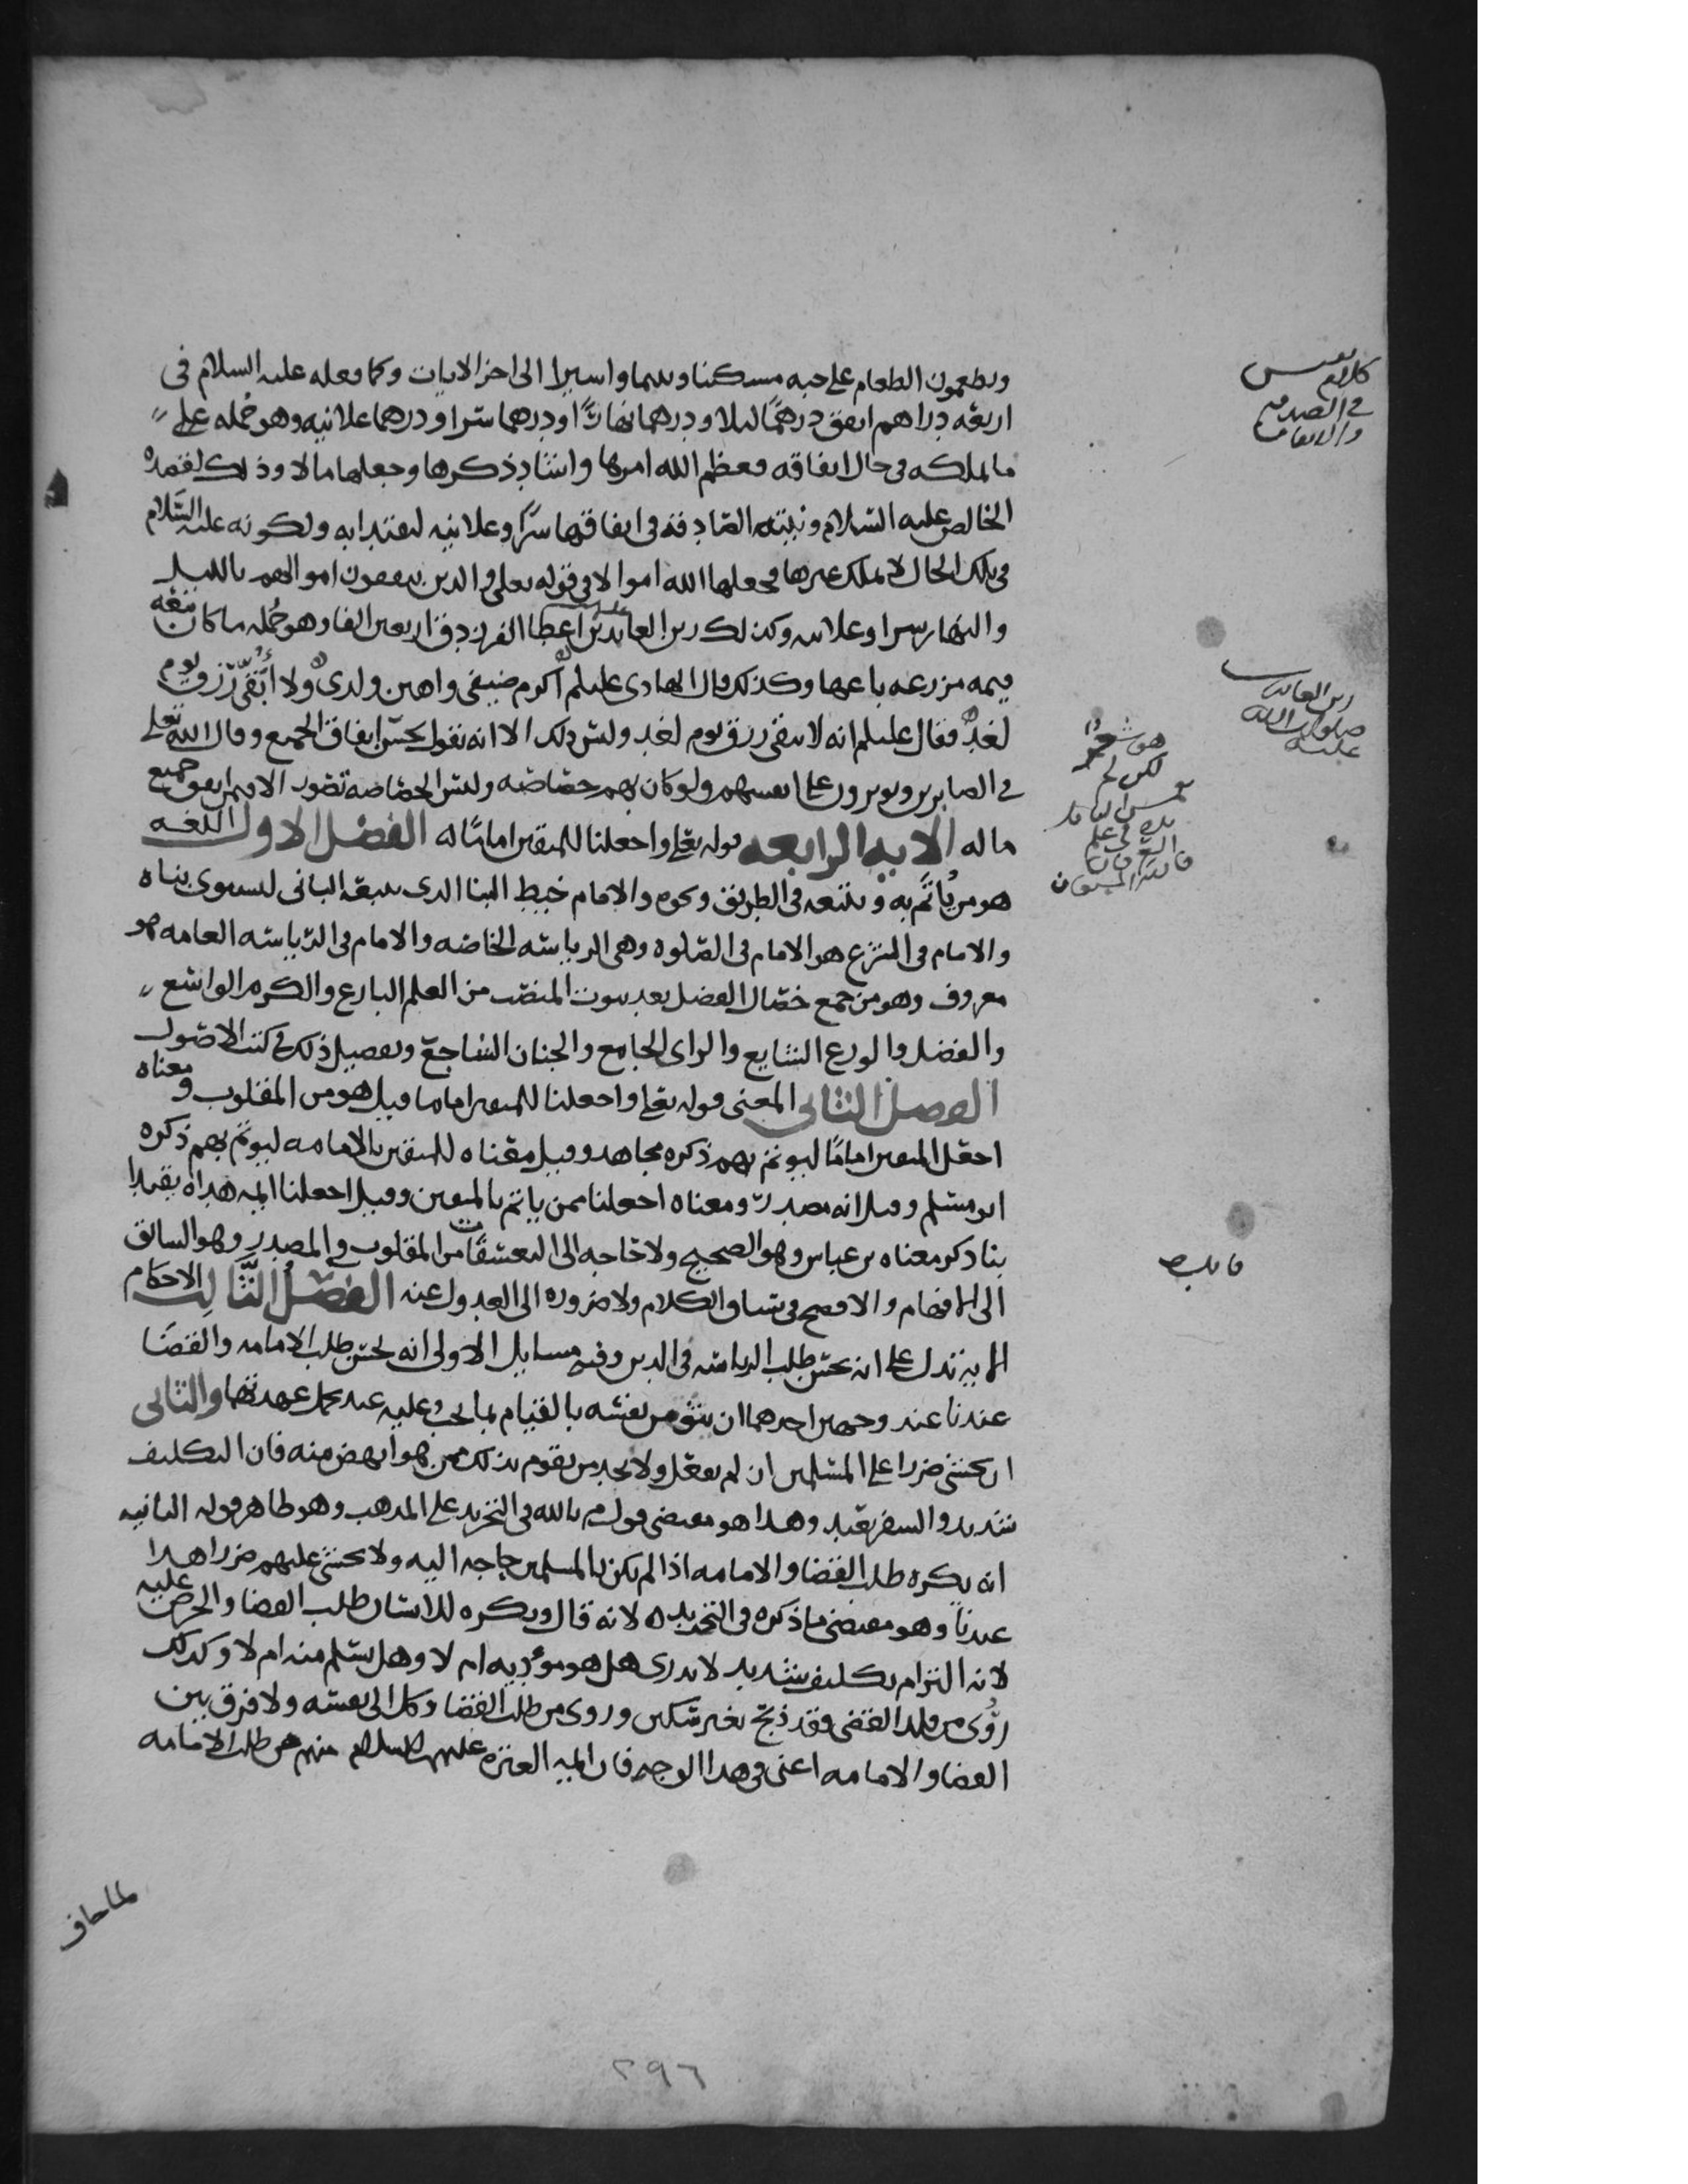 ويطعمون الطعام على حبه مسكينا ويتيما واسيرا الى اخر الايات وكما فعله عليه السلام في
اربعه دراهم انفق درهما ليلا ودرهما نهارا ودرهما سرا ودرهما علانيه وهو جمله
ما يملكه في حال انفاقه فعظم الله امرها واشاد بذكرها وجعلها مالا وذلك لقصده
الخالص عليه السلام ونيته الصادقه في انفاقها سرا وعلانيه ليقتدا به ولكونه عليه السلام
في تلك الحال لا يملك غيرها فجعلها الله اموالا في قوله تعلى والذين ينفقون اموالهم بالليل
والنهار سرا وعلانيه وكذلك زين العابدين اعطا الفرزدق اربعين الفا وهو جمله ما كان
قيمه مزرعه باعها وكذلك قال الهادي عليلم اكرم ضيفي واهين ولدي ولا أبقي رزق يوم
لغد فقال عليلم انه لا يبقي رزق يوم لغد وليس ذلك الا انه يقول بحسن انفاق الجميع وقال الله تعلى
في الصابرين ويوثرون على انفسهم ولو كان بهم خصاصه وليس الخصاصه تتصور الا فيمن انفق جميع
ماله الايه الرابعه قوله تعلى واجعلنا للمتقين اماما له الفصل الاول اللغه
هو من يُأتَم به ويتبعه في الطريق ونحوه والامام خيط البنا الذي يتبعه الباني ليستوي بناه
والامام في الشرع هو الامام في الصلوه وهي الرياسه الخاصه والامام في الرياسه العامه هو
معروف وهو من جمع خصال الفضل بعد ثبوت المنصب من العلم البارع والكرم الواسع
والفضل والورع الشايع والراى الجامع والجنان الشاجع وتفصيل ذلك في كتب الاصول
الفصل الثاني المعنى قوله تعلى واجعلنا للمتقين اماما قيل هو من المقلوب ومعناه
اجعل المتقين اماما ليوتم بهم ذكره مجاهد وقيل معناه للمتقين بالامامه ليوتم بهم ذكره
ابو مسلم وقيل انه مصدر ومعناه اجعلنا ممن ياتم بالمتقين وقيل اجعلنا ايمه هداه يقتدا
بنا ذكر معناه بن عباس وهو الصحيح ولا حاجه الى التعسفات من المقلوب والمصدر وهو السابق
الى الافهام والافصح في سياق الكلام ولا ضروره الى العدول عنه الفصل الثالث الاحكام
الايه تدل على انه يحسن طلب الرياسه في الدين وفيه مسايل الاولى انه يحسن طلب الامامه والقضا
عندنا عند وجهين احدهما ان يثق من نفسه بالقيام بما يجب عليه عند تحمل عهدتها والثاني
ان يخشى ضررا على المسلمين ان لم يفعل ولا يجد من يقوم بذلك ممن هو انهض منه فان التكليف
شديد والسفر بعيد وهذا هو مقتضى قول م بالله في التحرير على المذهب وهو ظاهر قوله الثانيه
انه يكره طلب القضا والامامه اذا لم يكن بالمسلمين حاجه اليه ولا يخشى عليهم ضررا هذا
عندنا وهو مقتضى ما ذكره في التحرير لانه قال ويكره للانسان طلب القضا والحرص عليه
لانه التزام تكليف شديد لا يدري هل هو مؤد به ام لا وهل يسلم منه ام لا وكذلك
رُوى من ولي القضى فقد ذبح بغير سكين وروى من طلب القضا وكل الى نفسه ولا فرق بين
القضا والامامه اعنى في هذا الوجه فان ايمه العتره عليهم السلام منهم من طلب الامامه
كلام نفيس
في الصدقه
والانفاق
زين العابدين
صلوات الله
عليه
فايده
٢٩٦